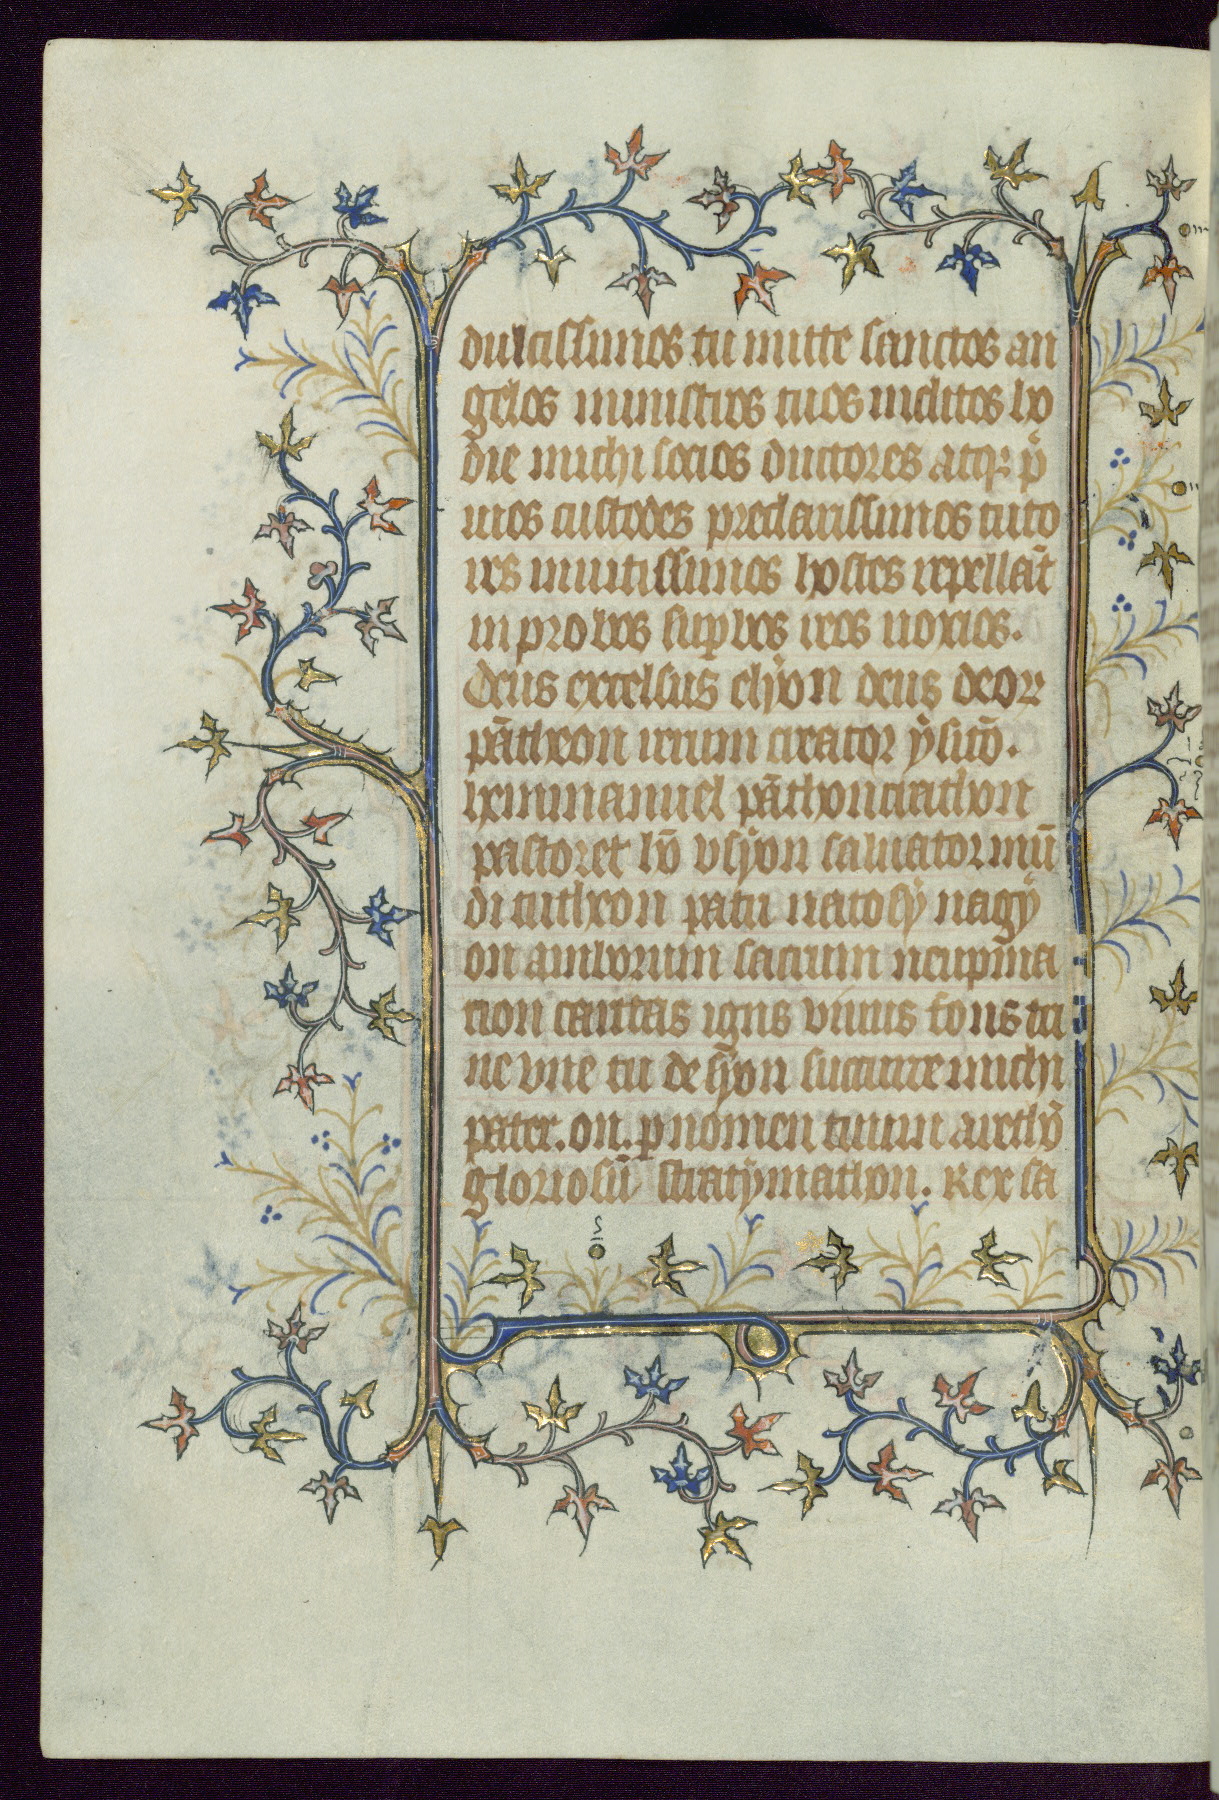 dulcissimos tu mitte sanctos an
gelos ministros tuos inclitos ho
die michi socios ductores atq; p̄
uios custodes preclarissimos tuto
res invitissimos hostes repellāt
in probos supbos reos noxios.
Deus excelsus elyon deus deoꝝ
pātheon rerum creator ysitō.
hemmanuel pāthoncrathon
pastoret hō usyon saluator mū
di tutheon patri nato sy nagy
on amborum sacrum neupma
tion caritas ignis viuus fons ta
ne vne tu de syon succurre michi
pater. on. p nomen tuum areth̄o
gloriosū stratymathon. Rex sa